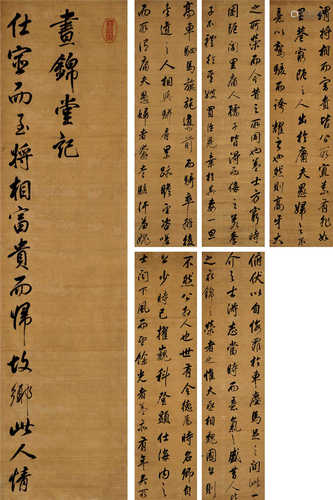 晝錦堂記
仕宦而至將相富貴而歸故鄉此人情
之所榮而今昔之所同也蓋士方窮時
困阨閭里庸人孺子皆得而侮之若季
子不禮於其嫂買臣見棄於其妻一旦
高車駟馬旗旄導前而騎卒擁後
夾道之人相與駢肩累跡瞻望咨嗟
而所謂庸夫愚婦者奔走駭汗羞愧
俯伏以自悔罪於車塵馬足之間此一
介之士得志當時而意氣之盛昔人
比之衣錦之榮者也惟大丞相魏國公則
不然公相人也世有令德為時名卿自
公少時已擢高科登顯仕海內之
士聞下風而望餘光者蓋亦有年矣所
謂將相富貴皆公所宜素有非如
出於庸夫愚婦之不
意以驚駭而誇耀之也然則高牙大